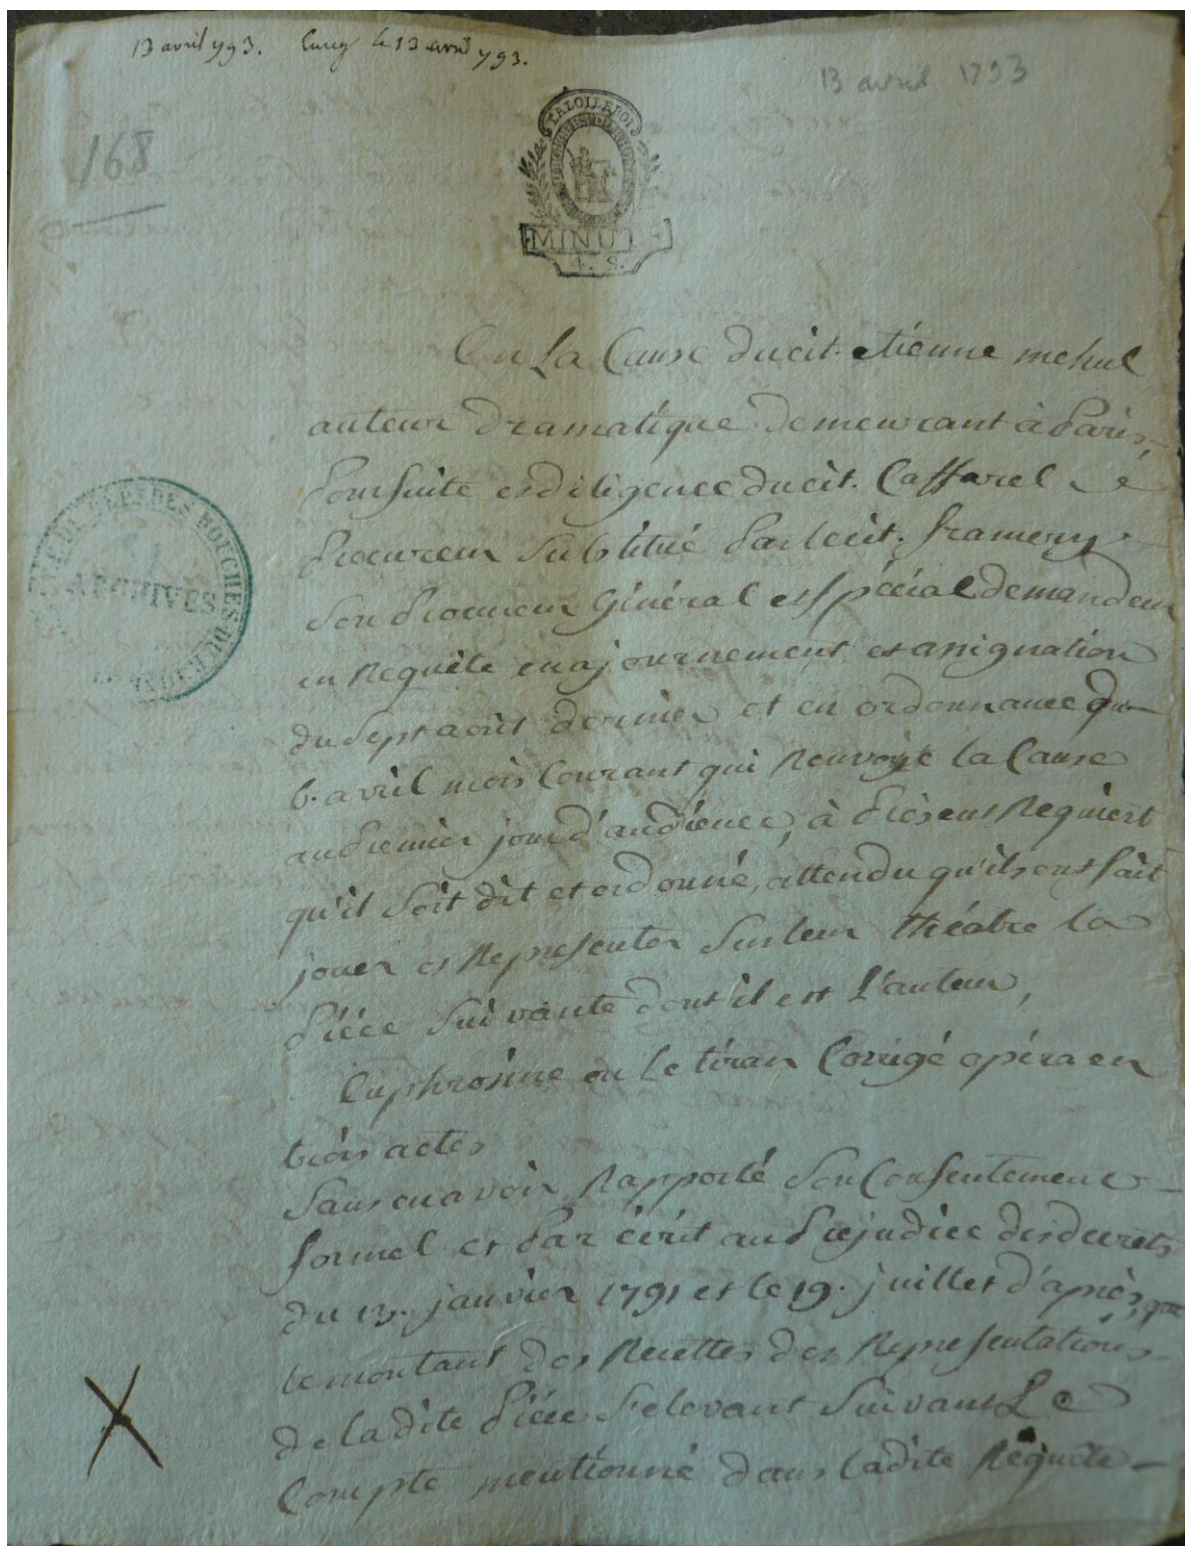 13 avril 793. le 13 avril 793.
13 avril 1793
168
LA LOI LE ROI
MINUT
4. S.
En La Cause du cit. etienne mehul
auteur dramatique demeurant à Paris,
Poursuite et diligence du cit. Caffarel
Procureur Substitué Par le cit. framery
Son Procureur Général et spécial demandeur
en Requête en ajournement et assignation
du sept août dernier et en ordonnance du
6. avril mois Courant qui Renvoye la Cause
au Premier jour d'audience, à Présent Requiert
qu'il soit dit et ordonné, attendu qu'ils ont fait
jouer et Representer sur leur théatre la
Pièce Suivante dont il est L'auteur,
Euphrosine ou le tiran Corrigé opéra en
trois actes
Sans en avoir Rapporté Son Consentement
formel et Par écrit au Préjudice des decrets
du 13. janvier 1791 et le 19. juillet d'après, que
le montant des Recettes des Representations
de la dite Pièce S'elevant Suivant Le
Compte mentionné dans ladite Requête
ARCHIVES
DES BOUCHES DU R